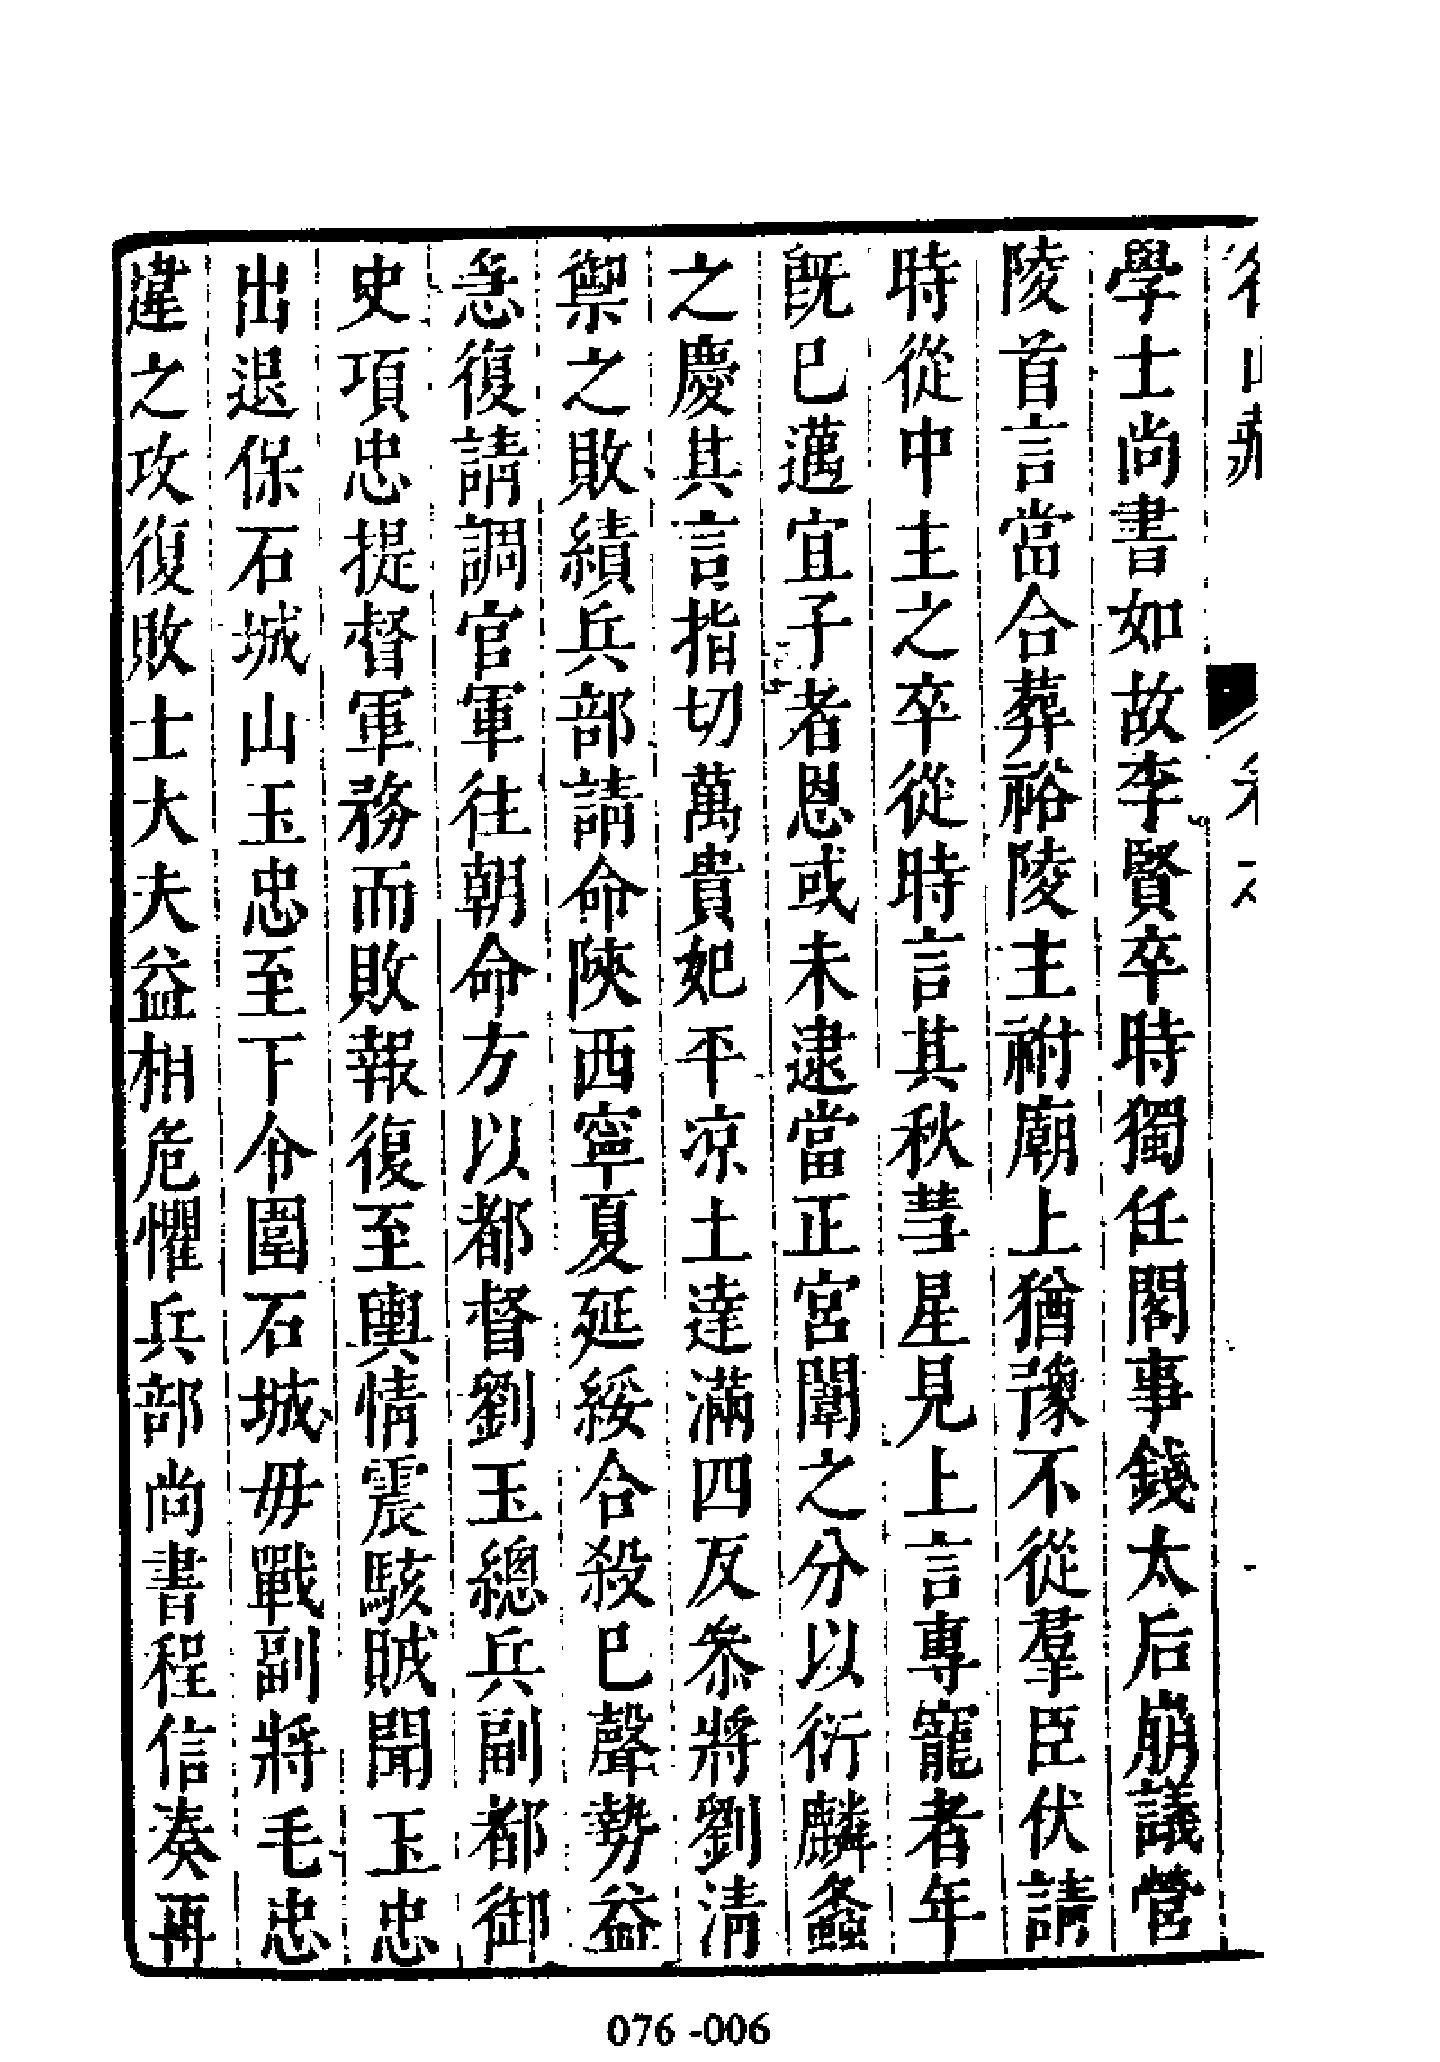 學士尚書如故李賢卒時獨任閣事錢太后崩議營
陵首言當合葬裕陵主祔廟上猶豫不從羣臣伏請
時從中主之卒從時言其秋彗星見上言專寵者年
旣已邁宜子者恩或未逮當正宮闈之分以衍麟螽
之慶其言指切萬貴妃平凉土達滿四反叅將劉清
禦之敗績兵部請命陝西寧夏延綏合殺已聲勢益
急復請調官軍往朝命方以都督劉玉總兵副都御
史項忠提督軍務而敗報復至輿情震駭賊聞玉忠
出退保石城山玉忠至下令圍石城毋戰副將毛忠
違之攻復敗士大夫益相危懼兵部尚書程信奏再
076 -006